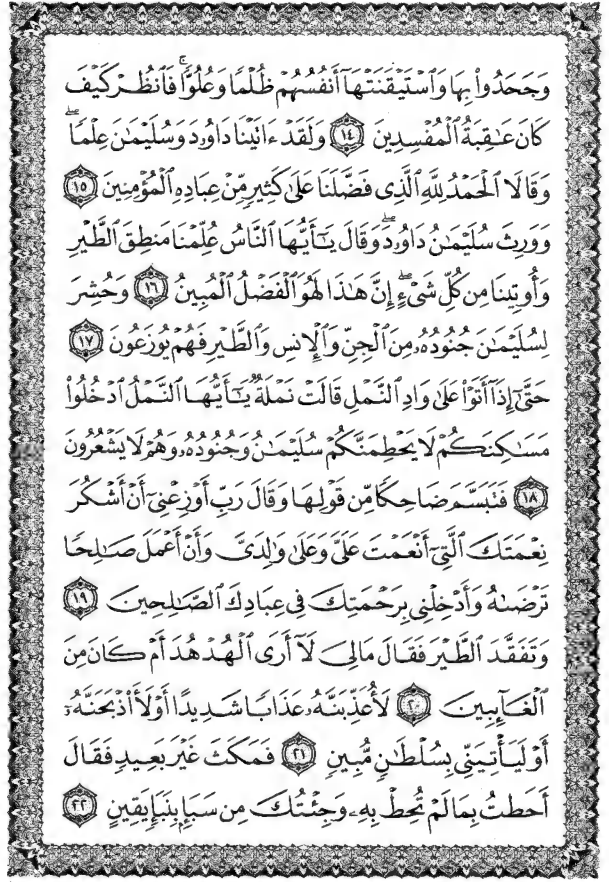 وَجَحَدُوا۟ بِهَا وَٱسْتَيْقَنَتْهَآ أَنفُسُهُمْ ظُلْمًا وَعُلُوًّا ۚ فَٱنظُرْ كَيْفَ
كَانَ عَـٰقِبَةُ ٱلْمُفْسِدِينَ ١٤ وَلَقَدْ ءَاتَيْنَا دَاوُۥدَ وَسُلَيْمَـٰنَ عِلْمًا ۖ
وَقَالَا ٱلْحَمْدُ لِلَّهِ ٱلَّذِى فَضَّلَنَا عَلَىٰ كَثِيرٍ مِّنْ عِبَادِهِ ٱلْمُؤْمِنِينَ ١٥
وَوَرِثَ سُلَيْمَـٰنُ دَاوُۥدَ ۖ وَقَالَ يَـٰٓأَيُّهَا ٱلنَّاسُ عُلِّمْنَا مَنطِقَ ٱلطَّيْرِ
وَأُوتِينَا مِن كُلِّ شَىْءٍ ۖ إِنَّ هَـٰذَا لَهُوَ ٱلْفَضْلُ ٱلْمُبِينُ ١٦ وَحُشِرَ
لِسُلَيْمَـٰنَ جُنُودُهُۥ مِنَ ٱلْجِنِّ وَٱلْإِنسِ وَٱلطَّيْرِ فَهُمْ يُوزَعُونَ ١٧
حَتَّىٰٓ إِذَآ أَتَوْا۟ عَلَىٰ وَادِ ٱلنَّمْلِ قَالَتْ نَمْلَةٌ يَـٰٓأَيُّهَا ٱلنَّمْلُ ٱدْخُلُوا۟
مَسَـٰكِنَكُمْ لَا يَحْطِمَنَّكُمْ سُلَيْمَـٰنُ وَجُنُودُهُۥ وَهُمْ لَا يَشْعُرُونَ
١٨ فَتَبَسَّمَ ضَاحِكًا مِّن قَوْلِهَا وَقَالَ رَبِّ أَوْزِعْنِىٓ أَنْ أَشْكُرَ
نِعْمَتَكَ ٱلَّتِىٓ أَنْعَمْتَ عَلَىَّ وَعَلَىٰ وَٰلِدَىَّ وَأَنْ أَعْمَلَ صَـٰلِحًا
تَرْضَىٰهُ وَأَدْخِلْنِى بِرَحْمَتِكَ فِى عِبَادِكَ ٱلصَّـٰلِحِينَ ١٩
وَتَفَقَّدَ ٱلطَّيْرَ فَقَالَ مَا لِىَ لَآ أَرَى ٱلْهُدْهُدَ أَمْ كَانَ مِنَ
ٱلْغَآئِبِينَ ٢٠ لَأُعَذِّبَنَّهُۥ عَذَابًا شَدِيدًا أَوْ لَأَا۟ذْبَحَنَّهُۥٓ
أَوْ لَيَأْتِيَنِّى بِسُلْطَـٰنٍ مُّبِينٍ ٢١ فَمَكَثَ غَيْرَ بَعِيدٍ فَقَالَ
أَحَطتُ بِمَا لَمْ تُحِطْ بِهِۦ وَجِئْتُكَ مِن سَبَإٍۭ بِنَبَإٍ يَقِينٍ ٢٢